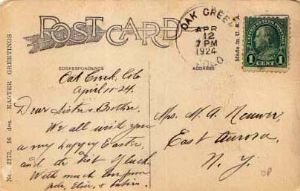 POST CARD
OAK CREEK
APR
12
7 PM
1924
COLO.
1 CENT 1
CORRESPONDENCE
ADDRESS
Made in U.S.A.
No. 2172, 16 des. EASTER GREETINGS
Oak Creek, Colo
April 12 24.
Dear Sister & Brother,
We all wish you
a very happy Easter,
and the best of luck.
With much love from
Mrs. M. A.
East Aurora,
N. Y.